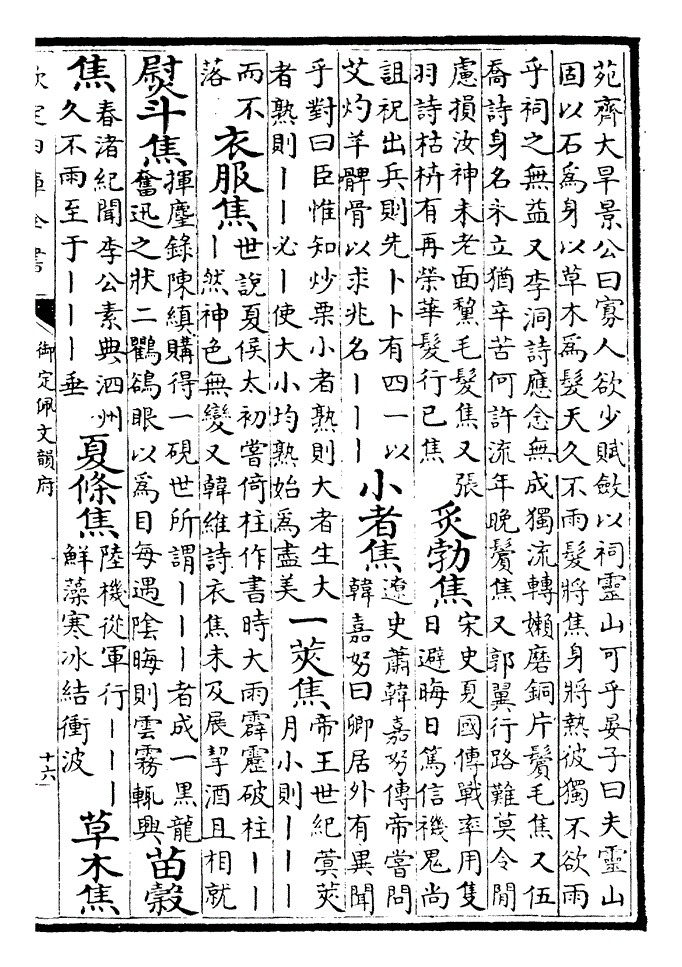 苑齊大旱景公曰寡人欲少賦斂以祠靈山可乎晏子曰夫靈山
固以石爲身以草木爲髮天久不雨髮將焦身將熱彼獨不欲雨
乎祠之無益又李洞詩應念無成獨流轉懶磨銅片鬢毛焦又伍
喬詩身名未立猶辛苦何許流年晚鬢焦又郭翼行路難莫令閒
慮損汝神未老面黧毛髮焦又張
羽詩枯枿有再榮華髮行已焦
炙勃焦
宋史夏國傳戰率用隻
日避晦日篤信機鬼尚
詛祝出兵則先卜卜有四一以
艾灼羊髀骨以求兆名丨丨丨
小者焦
遼史蕭韓嘉努傳帝嘗問
韓嘉努曰卿居外有異聞
乎對曰臣惟知炒栗小者熟則大者生大
者熟則丨丨必丨使大小均熟始爲盡美
一莢焦
帝王世紀蓂莢
月小則丨丨丨
而不
落
衣服焦
世說夏侯太初嘗倚柱作書時大雨霹靂破柱丨丨
丨然神色無變又韓維詩衣焦未及展挈酒且相就
熨斗焦
揮麈錄陳縝購得一硯世所謂丨丨丨者成一黒龍
奮迅之狀二鸜鵒眼以爲目每遇陰晦則雲霧輒興
苗穀
焦
春渚紀聞李公素典泗州
久不雨至于丨丨丨垂
夏條焦
陸機從軍行丨丨丨
鮮藻寒冰結衝波
草木焦
欽定四庫全書
御定佩文韻府
十六